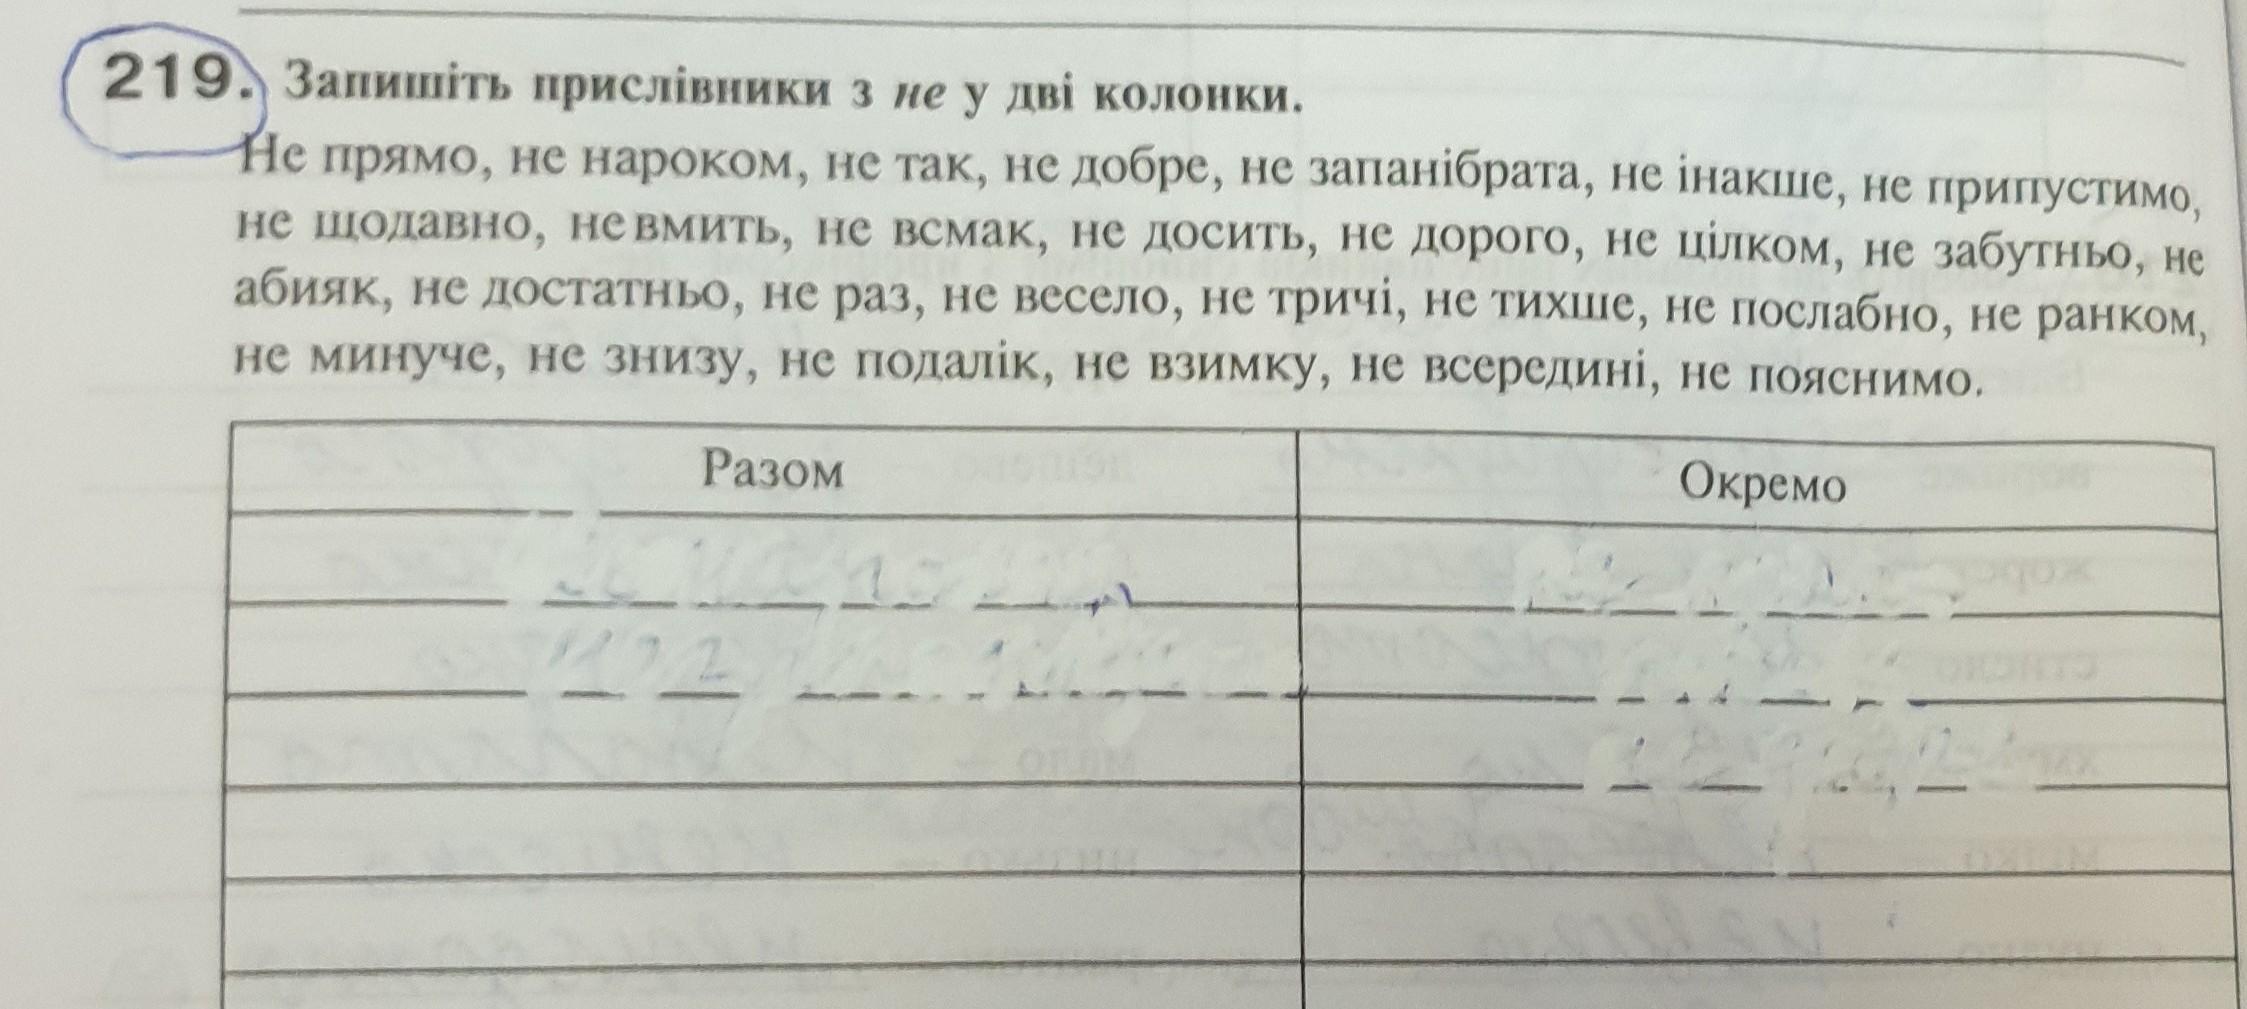 219. Запишіть прислівники з не у дві колонки.
Не прямо, не нароком, не так, не добре, не запанібрата, не інакше, не припустимо,
не щодавно, не вмить, не всмак, не досить, не дорого, не цілком, не забутньо, не
абияк, не достатньо, не раз, не весело, не тричі, не тихше, не послабно, не ранком,
не минуче, не знизу, не подалік, не взимку, не всередині, не пояснимо.
Разом Окремо